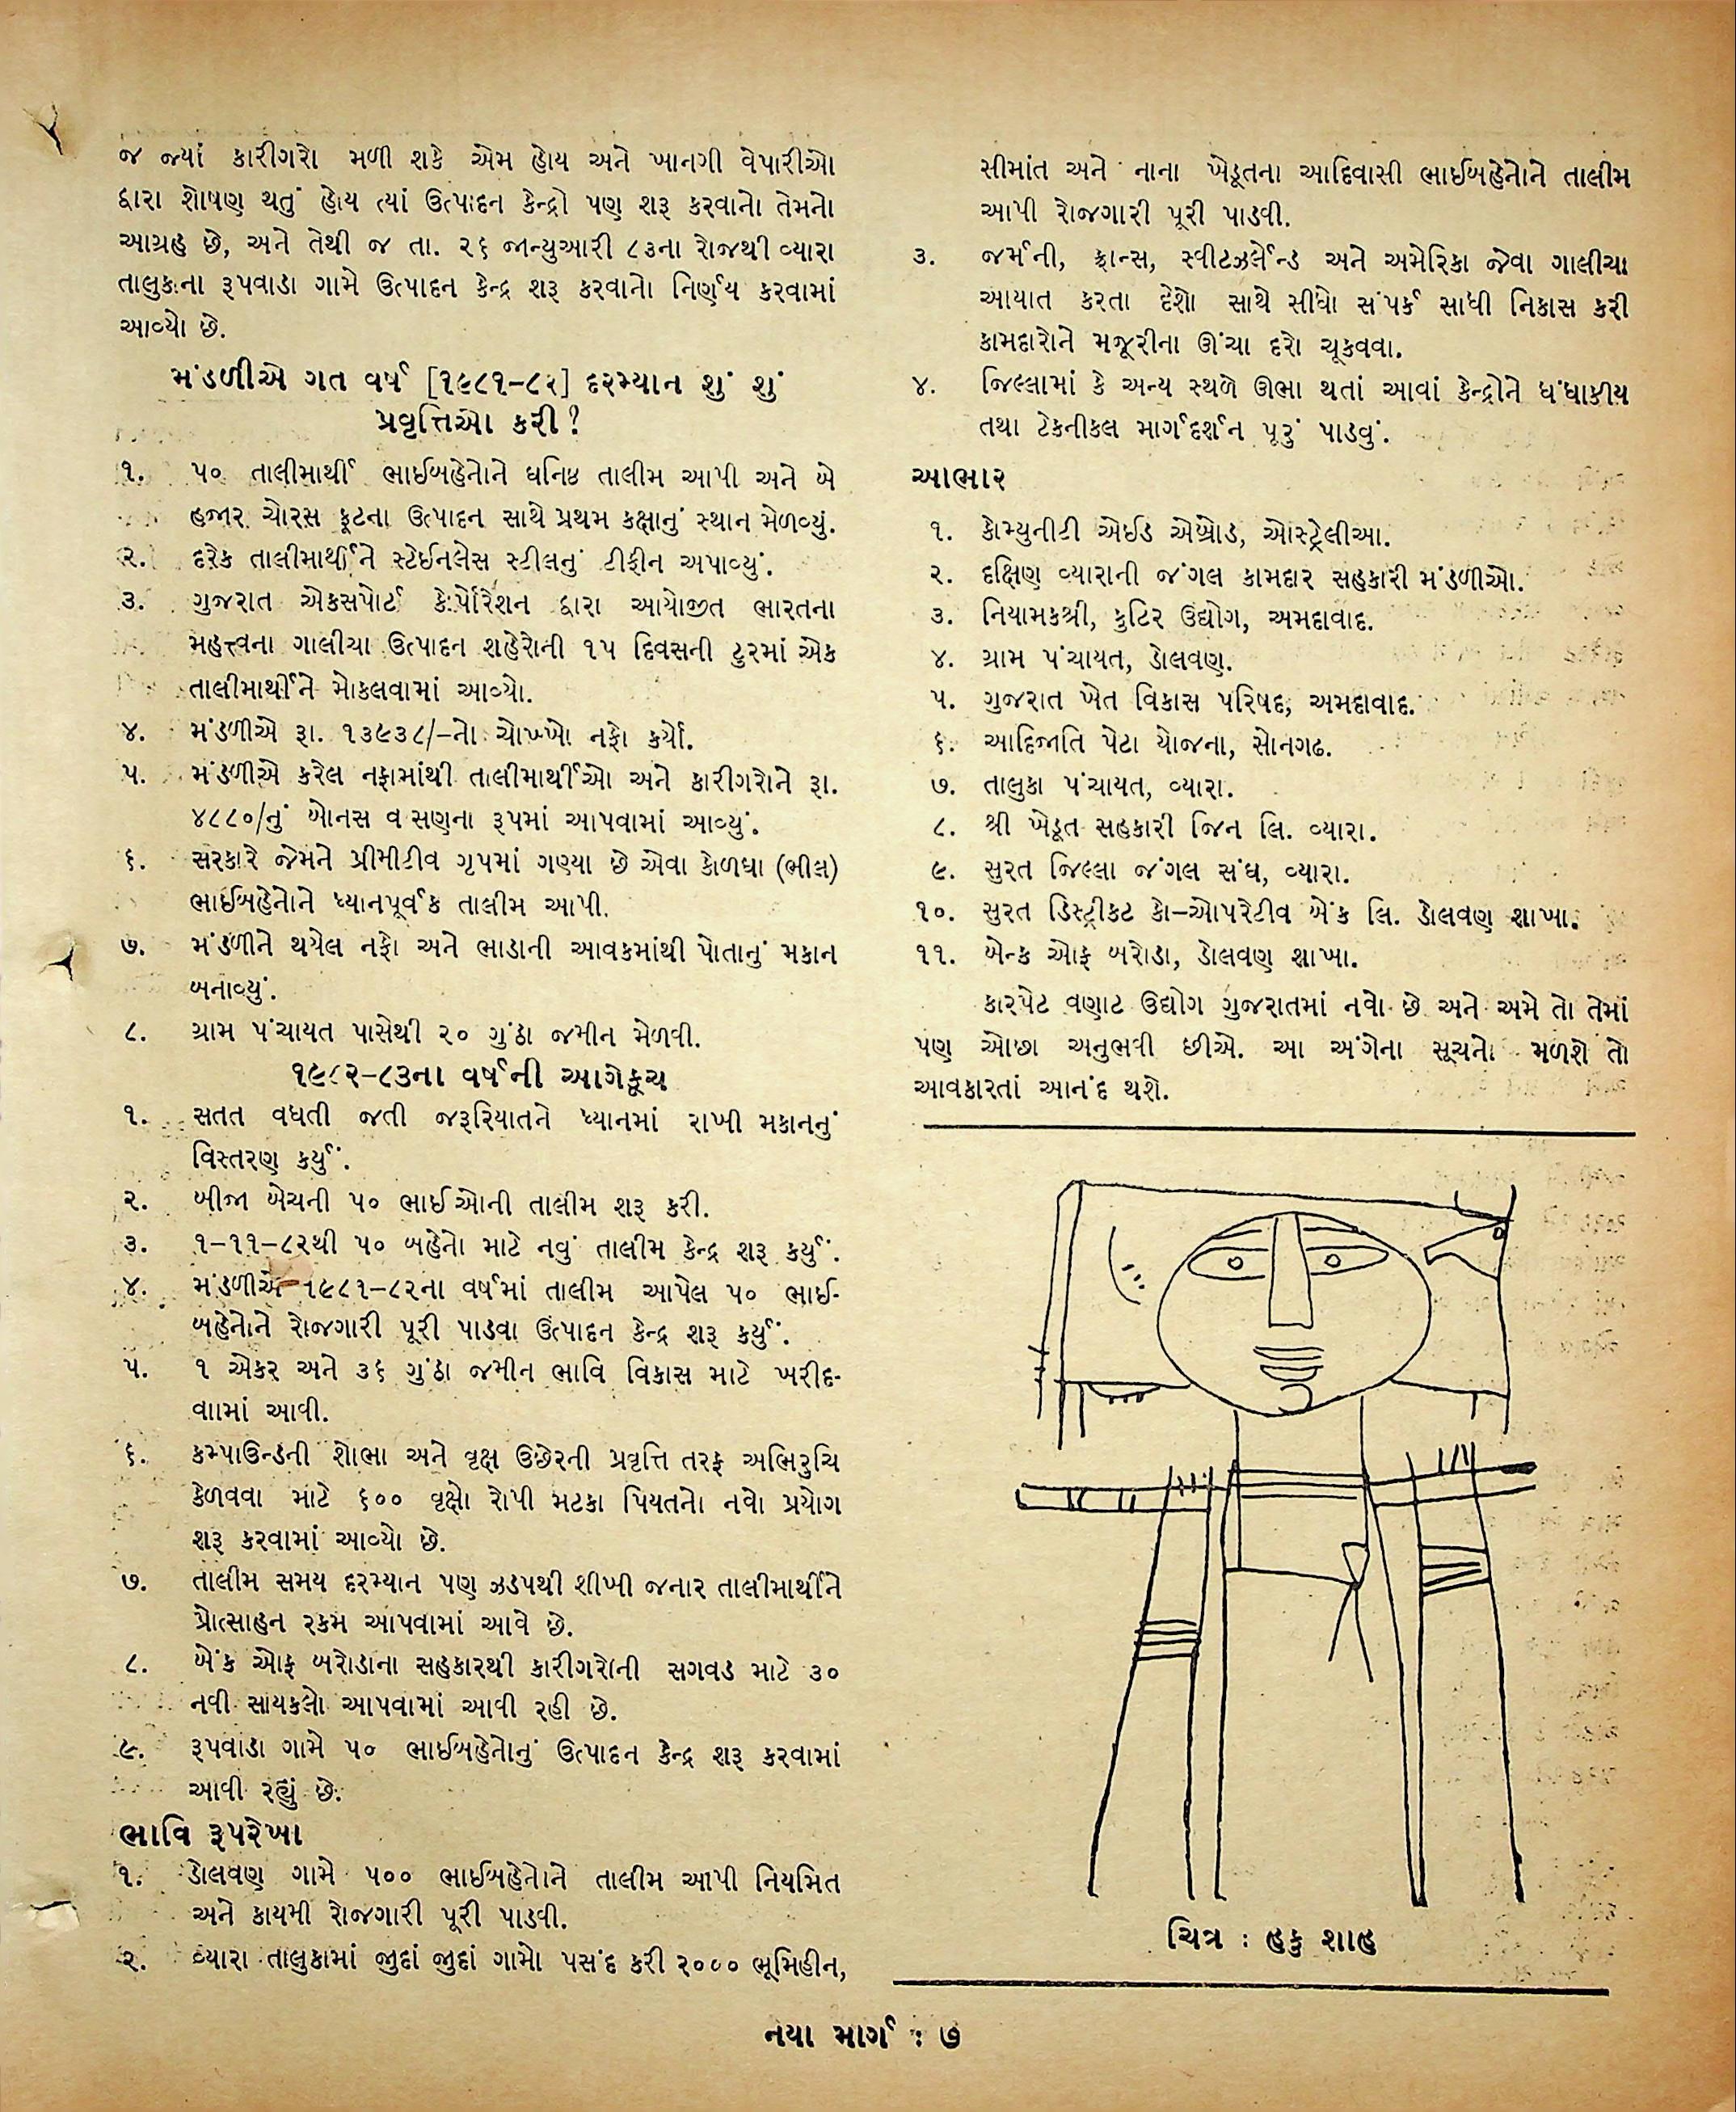 જ જ્યાં કારીગરો મળી શકે એમ હોય અને ખાનગી વેપારીઓ
દ્વારા શોષણ થતું હોય ત્યાં ઉત્પાદન કેન્દ્રો પણ શરૂ કરવાનો તેમનો
આગ્રહ છે, અને તેથી જ તા. ૨૬ જાન્યુઆરી ૮૩ના રોજથી વ્યારા
તાલુકાના રૂપવાડા ગામે ઉત્પાદન કેન્દ્ર શરૂ કરવાનો નિર્ણય કરવામાં
આવ્યો છે.
મંડળીએ ગત વર્ષ [૧૯૮૧-૮૨] દરમ્યાન શું શું
પ્રવૃત્તિઓ કરી?
૧. ૫૦ તાલીમાર્થી ભાઈબહેનોને ઘનિષ્ઠ તાલીમ આપી અને બે
હજાર ચોરસ ફૂટના ઉત્પાદન સાથે પ્રથમ કક્ષાનું સ્થાન મેળવ્યું.
૨. દરેક તાલીમાર્થીને સ્ટેઈનલેસ સ્ટીલનું ટીફીન અપાવ્યું.
૩. ગુજરાત એકસપોર્ટ કોર્પોરેશન દ્વારા આયોજીત ભારતના
મહત્ત્વના ગાલીચા ઉત્પાદન શહેરોની ૧૫ દિવસની ટુરમાં એક
તાલીમાર્થીને મોકલવામાં આવ્યો.
૪. મંડળીએ રૂા. ૧૩૯૩૮/-નો ચોખ્ખો નફો કર્યો.
૫. મંડળીએ કરેલ નફામાંથી તાલીમાર્થીઓ અને કારીગરોને રૂા.
૪૮૮૦/નું બોનસ વાસણના રૂપમાં આપવામાં આવ્યું.
૬. સરકારે જેમને પ્રીમીટીવ ગૃપમાં ગણ્યા છે એવા કોળઘા (ભીલ)
ભાઈબહેનોને ધ્યાનપૂર્વક તાલીમ આપી.
૭. મંડળીને થયેલ નફો અને ભાડાની આવકમાંથી પોતાનું મકાન
બનાવ્યું.
૮. ગ્રામ પંચાયત પાસેથી ૨૦ ગુંઠા જમીન મેળવી.
૧૯૮૨-૮૩ના વર્ષની આગેકૂચ
૧. સતત વધતી જતી જરૂરિયાતને ધ્યાનમાં રાખી મકાનનું
વિસ્તરણ કર્યું.
૨. બીજા બેચની ૫૦ ભાઈઓની તાલીમ શરૂ કરી.
૩. ૧-૧૧-૮૨થી ૫૦ બહેનો માટે નવું તાલીમ કેન્દ્ર શરૂ કર્યું.
૪. મંડળીએ ૧૯૮૧-૮૨ના વર્ષમાં તાલીમ આપેલ ૫૦ ભાઈ-
બહેનોને રોજગારી પૂરી પાડવા ઉત્પાદન કેન્દ્ર શરૂ કર્યું.
૫. ૧ એકર અને ૩૬ ગુંઠા જમીન ભાવિ વિકાસ માટે ખરીદ-
વાામાં આવી.
૬. કમ્પાઉન્ડની શોભા અને વૃક્ષ ઉછેરની પ્રવૃત્તિ તરફ અભિરુચિ
કેળવવા માટે ૬૦૦ વૃક્ષો રોપી મટકા પિયતનો નવો પ્રયોગ
શરૂ કરવામાં આવ્યો છે.
૭. તાલીમ સમય દરમ્યાન પણ ઝડપથી શીખી જનાર તાલીમાર્થીને
પ્રોત્સાહન રકમ આપવામાં આવે છે.
૮. બેંક ઓફ બરોડાના સહકારથી કારીગરોની સગવડ માટે ૩૦
નવી સાયકલો આપવામાં આવી રહી છે.
૯. રૂપવાડા ગામે ૫૦ ભાઈબહેનોનું ઉત્પાદન કેન્દ્ર શરૂ કરવામાં
આવી રહ્યું છે.
ભાવિ રૂપરેખા
૧. ડોલવણ ગામે ૫૦૦ ભાઈબહેનોને તાલીમ આપી નિયમિત
અને કાયમી રોજગારી પૂરી પાડવી.
૨. વ્યારા તાલુકામાં જુદાં જુદાં ગામો પસંદ કરી ૨૦૦૦ ભૂમિહીન,
સીમાંત અને નાના ખેડૂતના આદિવાસી ભાઈબહેનોને તાલીમ
આપી રોજગારી પૂરી પાડવી.
૩. જર્મની, ફ્રાન્સ, સ્વીટઝર્લેન્ડ અને અમેરિકા જેવા ગાલીચા
આયાત કરતા દેશો સાથે સીધો સંપર્ક સાધી નિકાસ કરી
કામદારોને મજૂરીના ઊંચા દરો ચૂકવવા.
૪. જિલ્લામાં કે અન્ય સ્થળે ઊભા થતાં આવાં કેન્દ્રોને ધંધાકીય
તથા ટેકનીકલ માર્ગદર્શન પૂરું પાડવું.
આભાર
૧. કોમ્યુનીટી એઈડ એબ્રોડ, ઓસ્ટ્રેલીઆ.
૨. દક્ષિણ વ્યારાની જંગલ કામદાર સહકારી મંડળીઓ.
૩. નિયામકશ્રી, કુટિર ઉદ્યોગ, અમદાવાદ.
૪. ગ્રામ પંચાયત, ડોલવણ.
૫. ગુજરાત ખેત વિકાસ પરિષદ, અમદાવાદ.
૬. આદિજાતિ પેટા યોજના, સોનગઢ.
૭. તાલુકા પંચાયત, વ્યારા.
૮. શ્રી ખેડૂત સહકારી જિન લિ. વ્યારા.
૯. સુરત જિલ્લા જંગલ સંઘ, વ્યારા.
૧૦. સુરત ડિસ્ટ્રીકટ કો-ઓપરેટીવ બેંક લિ. ડોલવણ શાખા.
૧૧. બેન્ક ઓફ બરોડા, ડોલવણ શાખા.
કારપેટ વણાટ ઉદ્યોગ ગુજરાતમાં નવો છે અને અમે તો તેમાં
પણ ઓછા અનુભવી છીએ. આ અંગેના સૂચનો મળશે તો
આવકારતાં આનંદ થશે.
ચિત્ર : હકુ શાહ
નયા માર્ગ : ૭